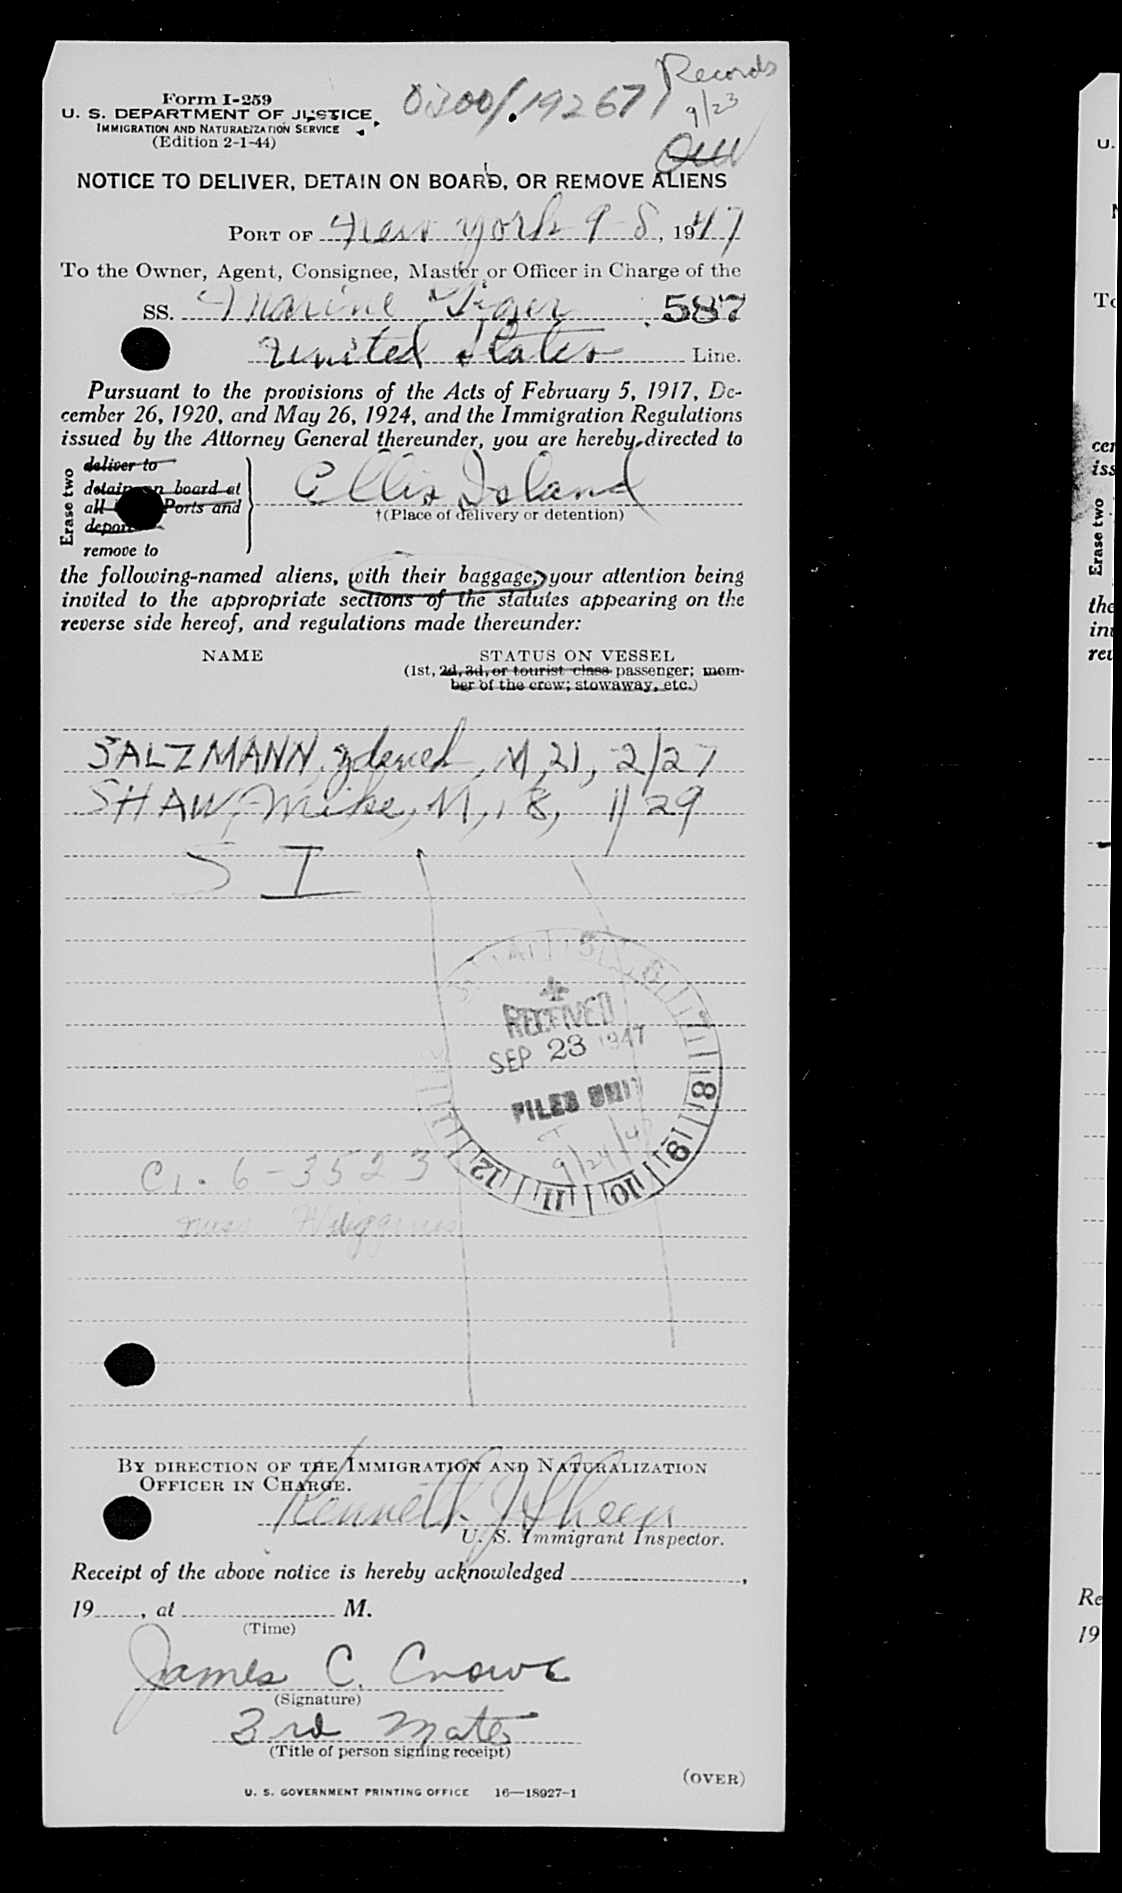 Records
9/23
Form I-259
U. S. DEPARTMENT OF JUSTICE
IMMIGRATION AND NATURALIZATION SERVICE
(Edition 2-1-44)
0300/192671
NOTICE TO DELIVER, DETAIN ON BOARD, OR REMOVE ALIENS
PORT OF New York 9-8, 1947
To the Owner, Agent, Consignee, Master or Officer in Charge of the
SS. Marine Tiger 587
United States Line.
Pursuant to the provisions of the Acts of February 5, 1917, De-
cember 26, 1920, and May 26, 1924, and the Immigration Regulations
issued by the Attorney General thereunder, you are hereby directed to
Erase two
deliver to
detain on board at
all Ports and
deport
remove to
Ellis Island
†(Place of delivery or detention)
the following-named aliens, with their baggage, your attention being
invited to the appropriate sections of the statutes appearing on the
reverse side hereof, and regulations made thereunder:
NAME STATUS ON VESSEL
(1st, 2d, 3d, or tourist class passenger; mem-
ber of the crew; stowaway, etc.)
SALZMANN, M, 21, 2/27
SHAW, Mike, M, 18, 11/29
S I
RECEIVED
SEP 23 1947
FILES UNIT
9/24/47
6 7 8 9 10 11 12
C1. 6-3523
Miss Huggins
BY DIRECTION OF THE IMMIGRATION AND NATURALIZATION
OFFICER IN CHARGE.
Kenneth J Sheen
U. S. Immigrant Inspector.
Receipt of the above notice is hereby acknowledged ,
19 , at M.
(Time)
James C. Crowe
(Signature)
3rd Mate
(Title of person signing receipt)
(OVER)
U. S. GOVERNMENT PRINTING OFFICE 16—18927-1
U.
To
cer
iss
Erase two
the
inv
rev
Re
19